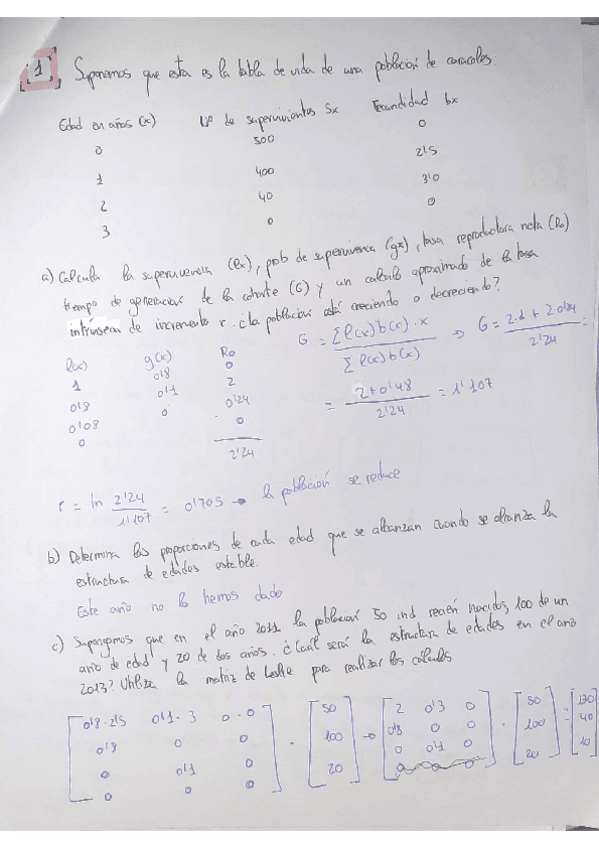 1 Suponemos que esta es la tabla de vida de una población de caracoles:
Edad en años (x) Nº de supervivientes Sx Fecundidad bx
0 500 0
1 400 2'5
2 40 3'0
3 0 0
a) Calcula la supervivencia (lx), prob de supervivencia (gx), tasa reproductora neta (Ro)
tiempo de generación de la cohorte (G) y un calculo aproximado de la tasa
intrínseca de incremento r. ¿la poblacion está creciendo o decreciendo?
l(x) g(x) Ro
1 0'8 0
0'8 0'1 2
0'08 0 0'24
0 0
2'24
G = Σl(x)b(x)·x / Σl(x)b(x) => G = 2·1 + 2·0'24 / 2'24 =
= 2+0'48 / 2'24 = 1'107
r = ln 2'24 / 1'107 = 0'705 → la población se reduce
b) Determina las proporciones de cada edad que se alcanzan cuando se alcanza la
estructura de edades estable.
Este año no lo hemos dado
c) Supongamos que en el año 2011 la población 50 ind recién nacidos, 100 de un
año de edad y 20 de dos años. ¿Cuál será la estructura de edades en el año
2013? Utiliza la matriz de Leslie para realizar los cálculos
0'8·2'5 0'1·3 0·0 50 2 0'3 0 50 130
0'8 0 0 · 100 → 0'8 0 0 · 100 = 40
0 0'1 0 20 0 0'1 0 20 10
0 0 0 0 0 0